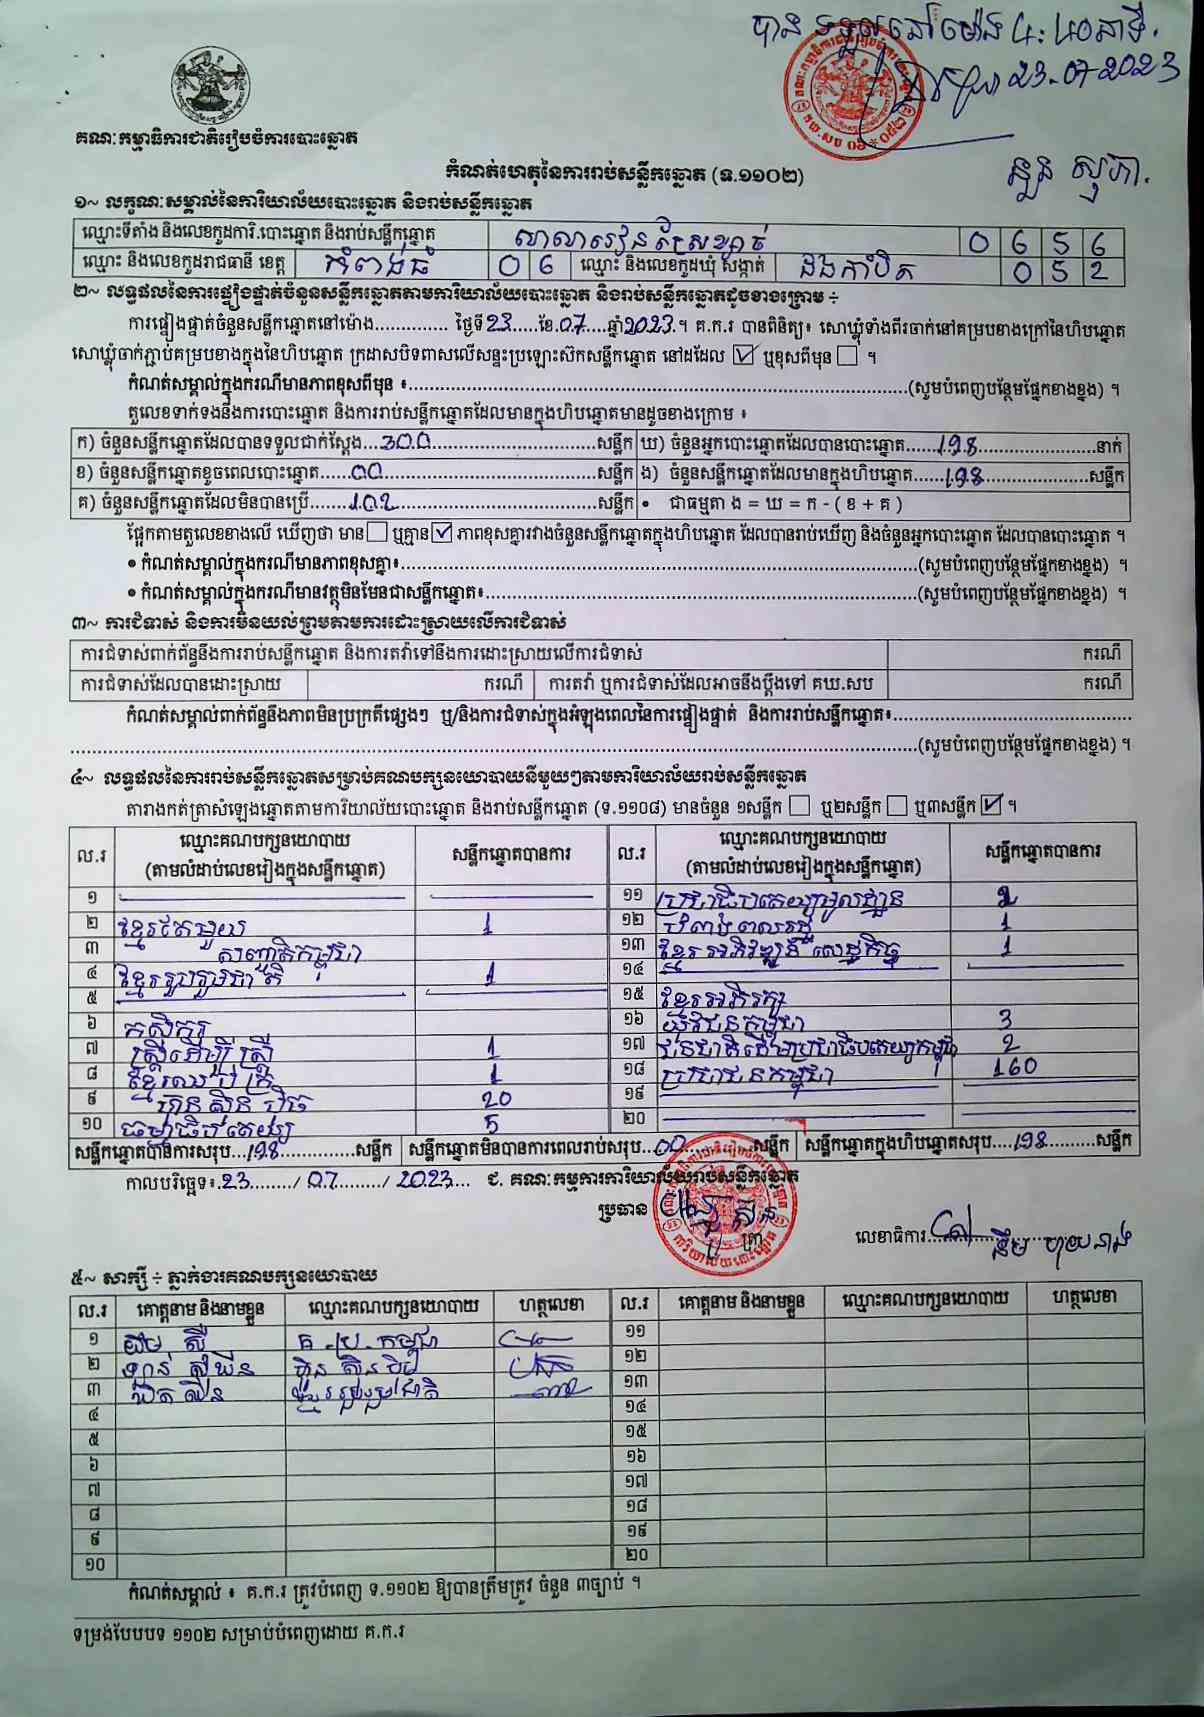 បាន ទទួលនៅម៉ោង ៤:៤០នាទី.
23-07-2023
គណៈកម្មាធិការជាតិរៀបចំការបោះឆ្នោត
កំណត់ហេតុនៃការរាប់សន្លឹកឆ្នោត (ទ.១១០២)
១~ លក្ខណៈសម្គាល់នៃការិយាល័យបោះឆ្នោត និងរាប់សន្លឹកឆ្នោត
ឈ្មោះទីតាំង និងលេខកូដការិ.បោះឆ្នោត និងរាប់សន្លឹកឆ្នោត សាលារៀន ស្រែខ្សាច់ 0 6 5 6
ឈ្មោះ និងលេខកូដរាជធានី ខេត្ត កំពង់ធំ 0 6 ឈ្មោះ និងលេខកូដឃុំ សង្កាត់ ដងកាំបិត 0 5 2
២~ លទ្ធផលនៃការផ្ទៀងផ្ទាត់ចំនួនសន្លឹកឆ្នោតតាមការិយាល័យបោះឆ្នោត និងរាប់សន្លឹកឆ្នោតដូចខាងក្រោម ÷
ការផ្ទៀងផ្ទាត់ចំនួនសន្លឹកឆ្នោតនៅម៉ោង.............. ថ្ងៃទី23.....ខែ.07.....ឆ្នាំ2023.។ គ.ក.រ បានពិនិត្យ៖ សោឃ្លុំទាំងពីរចាក់នៅគម្របខាងក្រៅនៃហិបឆ្នោត
សោឃ្លុំចាក់ភ្ជាប់គម្របខាងក្នុងនៃហិបឆ្នោត ក្រដាសបិទពាសលើសន្ទះប្រឡោះស៊កសន្លឹកឆ្នោត នៅដដែល ☑ ឬខុសពីមុន ☐ ។
កំណត់សម្គាល់ក្នុងករណីមានភាពខុសពីមុន ៖..............(សូមបំពេញបន្ថែមផ្នែកខាងខ្នង) ។
តួលេខទាក់ទងនឹងការបោះឆ្នោត និងការរាប់សន្លឹកឆ្នោតដែលមានក្នុងហិបឆ្នោតមានដូចខាងក្រោម ៖
ក) ចំនួនសន្លឹកឆ្នោតដែលបានទទួលជាក់ស្តែង...300..............សន្លឹក ឃ) ចំនួនអ្នកបោះឆ្នោតដែលបានបោះឆ្នោត......198..............នាក់
ខ) ចំនួនសន្លឹកឆ្នោតខូចពេលបោះឆ្នោត......00..............សន្លឹក ង) ចំនួនសន្លឹកឆ្នោតដែលមានក្នុងហិបឆ្នោត......198..............សន្លឹក
គ) ចំនួនសន្លឹកឆ្នោតដែលមិនបានប្រើ......102..............សន្លឹក • ជាធម្មតា ង = ឃ = ក - ( ខ + គ )
ផ្អែកតាមតួលេខខាងលើ ឃើញថា មាន ☐ ឬគ្មាន ☑ ភាពខុសគ្នារវាងចំនួនសន្លឹកឆ្នោតក្នុងហិបឆ្នោត ដែលបានរាប់ឃើញ និងចំនួនអ្នកបោះឆ្នោត ដែលបានបោះឆ្នោត ។
• កំណត់សម្គាល់ក្នុងករណីមានភាពខុសគ្នា៖..............(សូមបំពេញបន្ថែមផ្នែកខាងខ្នង) ។
• កំណត់សម្គាល់ក្នុងករណីមានវត្ថុមិនមែនជាសន្លឹកឆ្នោត៖..............(សូមបំពេញបន្ថែមផ្នែកខាងខ្នង) ។
៣~ ការជំទាស់ និងការមិនយល់ព្រមតាមការដោះស្រាយលើការជំទាស់
ការជំទាស់ពាក់ព័ន្ធនឹងការរាប់សន្លឹកឆ្នោត និងការតវ៉ាទៅនឹងការដោះស្រាយលើការជំទាស់ ករណី
ការជំទាស់ដែលបានដោះស្រាយ ករណី ការតវ៉ា ឬការជំទាស់ដែលអាចនឹងប្តឹងទៅ គឃ.សប ករណី
កំណត់សម្គាល់ពាក់ព័ន្ធនឹងភាពមិនប្រក្រតីផ្សេងៗ ឬ/និងការជំទាស់ក្នុងអំឡុងពេលនៃការផ្ទៀងផ្ទាត់ និងការរាប់សន្លឹកឆ្នោត៖..............
..............(សូមបំពេញបន្ថែមផ្នែកខាងខ្នង) ។
៤~ លទ្ធផលនៃការរាប់សន្លឹកឆ្នោតសម្រាប់គណបក្សនយោបាយនីមួយៗតាមការិយាល័យរាប់សន្លឹកឆ្នោត
តារាងកត់ត្រាសំឡេងឆ្នោតតាមការិយាល័យបោះឆ្នោត និងរាប់សន្លឹកឆ្នោត (ទ.១១០៨) មានចំនួន ១សន្លឹក ☐ ឬ២សន្លឹក ☐ ឬ៣សន្លឹក ☑ ។
ល.រ ឈ្មោះគណបក្សនយោបាយ (តាមលំដាប់លេខរៀងក្នុងសន្លឹកឆ្នោត) សន្លឹកឆ្នោតបានការ ល.រ ឈ្មោះគណបក្សនយោបាយ (តាមលំដាប់លេខរៀងក្នុងសន្លឹកឆ្នោត) សន្លឹកឆ្នោតបានការ
១ ១១ ប្រជាធិបតេយ្យមូលដ្ឋាន 2
២ ខ្មែរតែមួយ 1 ១២ បំពាងពលរដ្ឋ 1
៣ សញ្ជាតិកម្ពុជា ១៣ ខ្មែរអភិវឌ្ឍន៍ សេដ្ឋកិច្ច 1
៤ ខ្មែររួបរួមជាតិ 1 ១៤
៥ ១៥ ខ្មែរអភិរក្ស
៦ កសិករ ១៦ យុវជនកម្ពុជា 3
៧ ស្ត្រីដើម្បីស្ត្រី 1 ១៧ ជនជាតិដើមប្រជាធិបតេយ្យកម្ពុជា 2
៨ ខ្មែរឈប់ក្រ 1 ១៨ ប្រជាជនកម្ពុជា 160
៩ ហ៊្វុនស៊ិនប៉ិច 20 ១៩
១០ ធម្មាធិបតេយ្យ 5 ២០
សន្លឹកឆ្នោតបានការសរុប...198..............សន្លឹក សន្លឹកឆ្នោតមិនបានការពេលរាប់សរុប...00..............សន្លឹក សន្លឹកឆ្នោតក្នុងហិបឆ្នោតសរុប....198..........សន្លឹក
កាលបរិច្ឆេទ៖.23......../ 07......../ 2023.... ជ. គណៈកម្មការការិយាល័យរាប់សន្លឹកឆ្នោត
ប្រធាន
លេខាធិការ..............
៥~ សាក្សី ÷ ភ្នាក់ងារគណបក្សនយោបាយ
ល.រ គោត្តនាម និងនាមខ្លួន ឈ្មោះគណបក្សនយោបាយ ហត្ថលេខា ល.រ គោត្តនាម និងនាមខ្លួន ឈ្មោះគណបក្សនយោបាយ ហត្ថលេខា
១ គ.ប្រ.កម្ពុជា ១១
២ ហ៊្វុនស៊ិនប៉ិច ១២
៣ ខ្មែររួបរួមជាតិ ១៣
៤ ១៤
៥ ១៥
៦ ១៦
៧ ១៧
៨ ១៨
៩ ១៩
១០ ២០
កំណត់សម្គាល់ ៖ គ.ក.រ ត្រូវបំពេញ ទ.១១០២ ឱ្យបានត្រឹមត្រូវ ចំនួន ៣ច្បាប់ ។
ទម្រង់បែបបទ ១១០២ សម្រាប់បំពេញដោយ គ.ក.រ